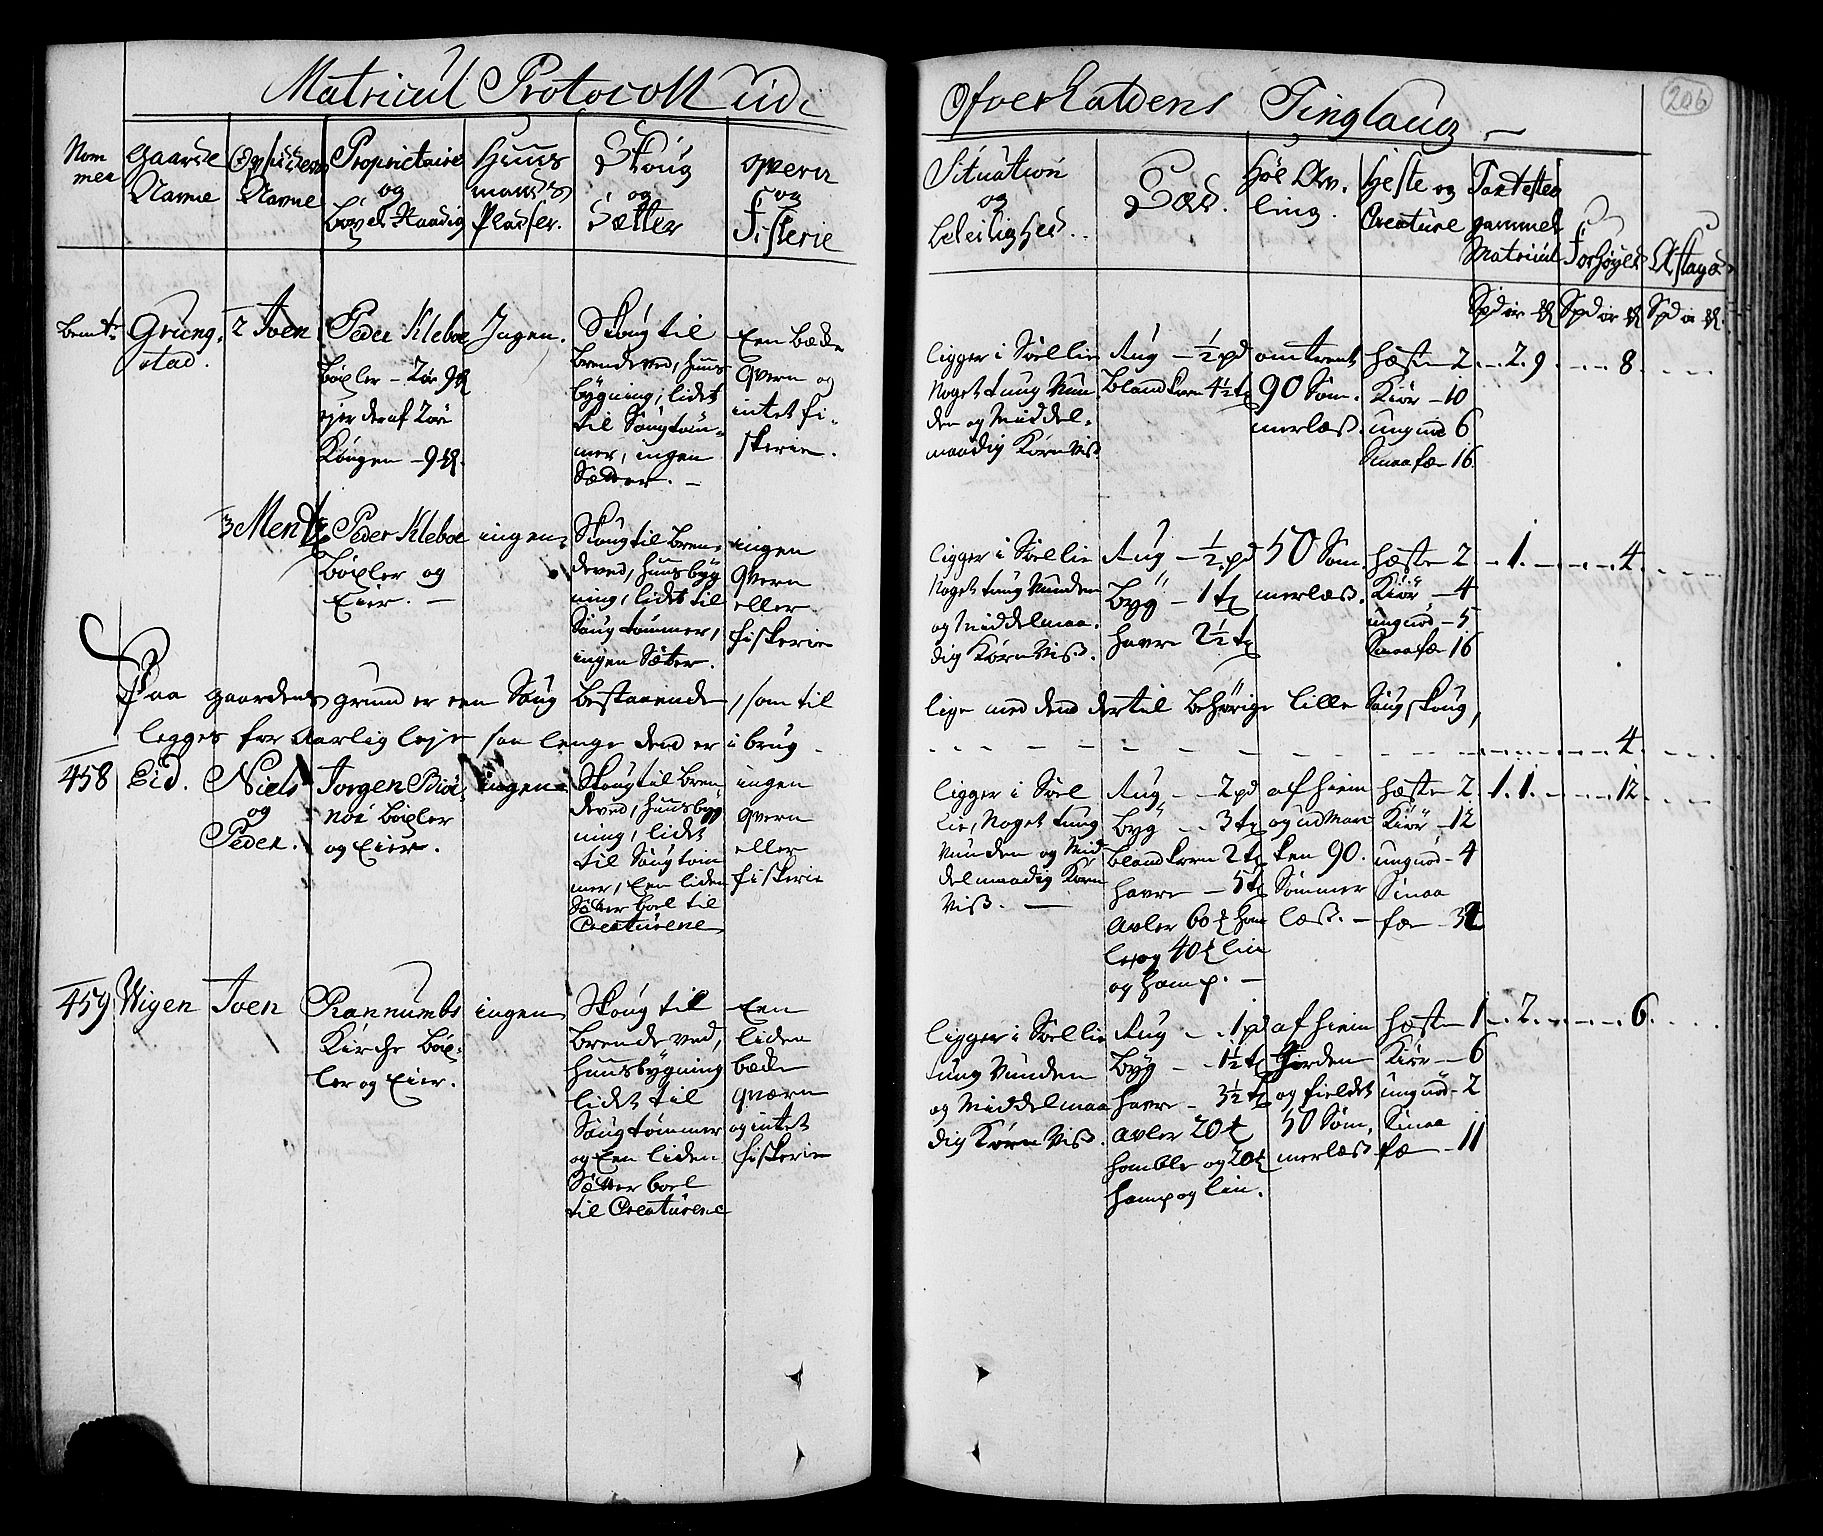 Matricul Protocoll udi
Ofverhaldens Tinglaug
206
Nom
mer
Gaarde
Navne
Opsidderns
Navne
Proprietairer
og
böxel Raadig
Huus
mands
Pladser.
Skoug
og
Sætter
qvern
og
Fiskerie
Situation
og
beleilighed.
Sæd.
Höe Av-
ling.
Heste og
Creature
Taxt efter
gammel
Matricul
Forhöyed
Aftaged
Spd ör
Spd ör
Spd ör
Grung-
stad.
2 Iven
Peder Kleboe
böxler - 2ör 9
ejer deraf 2ör
Kongen - 9
Ingen.
Skoug til
brendeved, huus
bygning, lidet
til Saugtöm-
mer, ingen
Sætter. -
Een bæcke
qvern og
intet fi-
skerie.
ligger i Soel lie
Noget tung Vun-
den og Middel-
maadig Korn Viss
Rug - ½ pd
blandkorn 4½ t
omtrent
90 Som-
merlæss.
Hæste 2
Kiör - 10
ungnöd 6
Smaafæ 16
2. 9
8
3 Mentz
Peder Kleboe
böxler og
Eier. -
ingen.
Skoug til bren-
deved, huusbyg
ning, lidet til
Saugtømmer,
ingen Sæter.
ingen
qvern
eller
fiskerie
ligger i Soellie
Noget tung Vunden
og Middelmaa-
dig Korn Viss.
Rug - ½ pd
Byg - 1 t
havre 2½ t
50 Som-
merlæss.
hæste 2
Kiör - 4
ungnöd - 5
Smaafæ 16
1
4
Paa gaardens grund er een Saug bestaaende, som til
lige med dend dertil behörige lille Saug skoug,
legges for Aarlig leje saa lenge dend er i brug -
4
458
Eid.
Niels
og
Peder.
Jörgen
böxler
og Eier.
ingen
Skoug til bren-
deved, huusbyg
ning, lidet
til Saugtöm
mer, Een liden
Sætter boel til
Creaturene
ingen
qvern
eller
fiskerie
ligger i Soel
lie, Noget tung
Vunden og Mid-
delmaadig Korn
Viss. -
Rug - 2 pd
Byg - 3 t
blandkorn 2 t
havre - 5 t
avler 60 hom
le og 40 lin
og hamp. -
af hiem
og udMar
ken 90.
Sommer
læss. -
hæste 2
Kiör - 12
ungnöd - 4
Smaa
fæ - 32
1. 1
12
459
Wigen
Iven
Rannumbs
Kirche böx-
ler og Eier.
ingen
Skoug til
brendeved,
huusbygning
lidet til
Saugtömmer
og Een liden
Sætter boel
til Creaturene
Een
liden
bæcke
qværn
og intet
fiskerie
ligger i Soel lie
tung Vunden
og Middelmaa
dig Korn Viss.
Rug - 1 pd
Byg - 1½ t
havre - 3½ t
avler 20
homble og 20
hamp og lin.
af hiem
Jorden
og fieldet
50 Som-
merlæss
hæste 1
Kiör - 6
ungnöd - 2
Smaa
fæ - 11
2
6